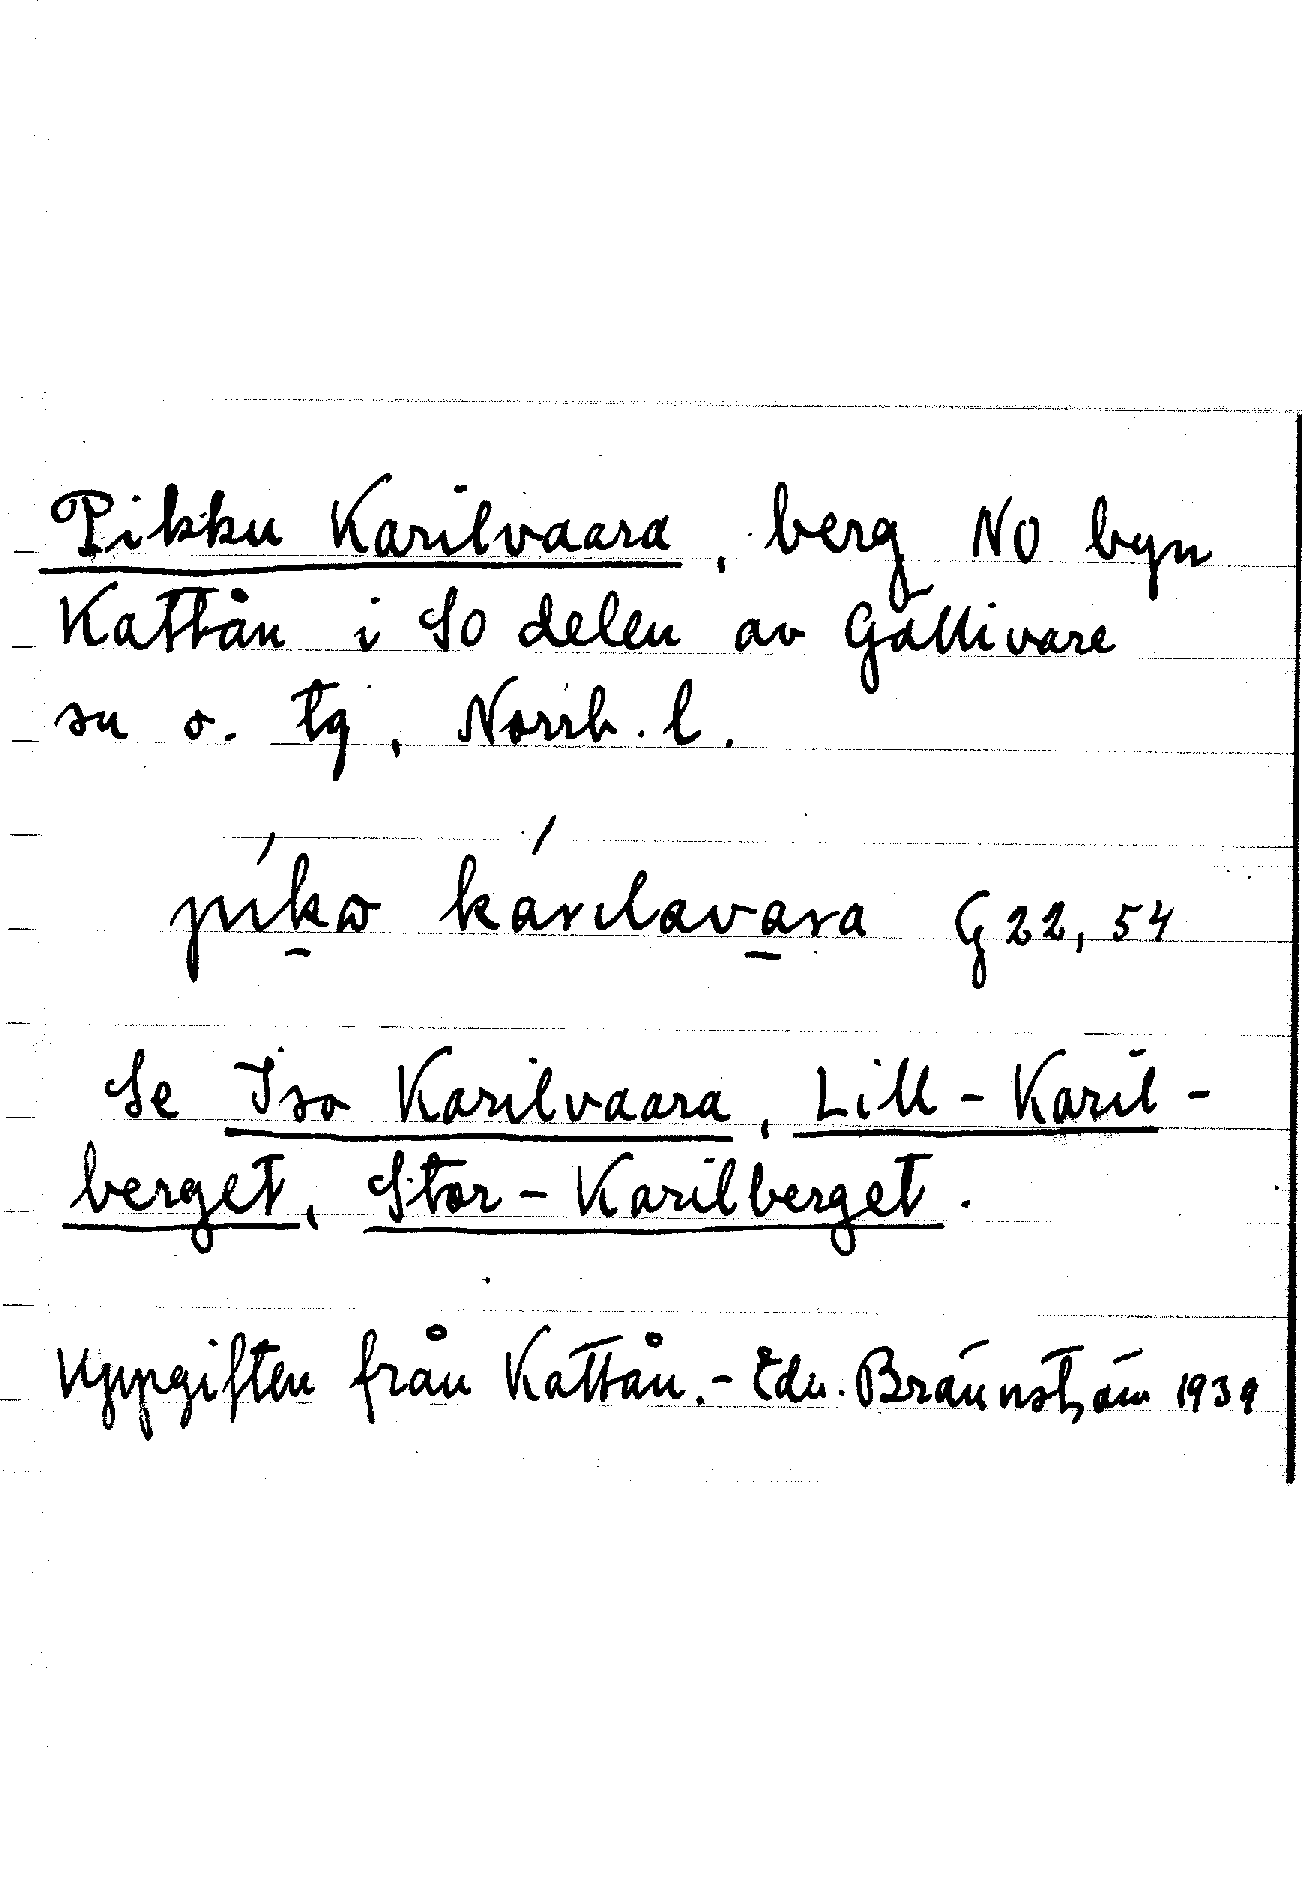 Pikku Karilvaara, berg NO byn
Kattån i SO delen av Gällivare
sn o. tg, Norrb. l.
píkω kárılavara G 22, 54
Se Iso Karilvaara, Lill-Karil-
berget, Stor-Karilberget.
Uppgiften från Kattån.- Edv. Brännström 1939